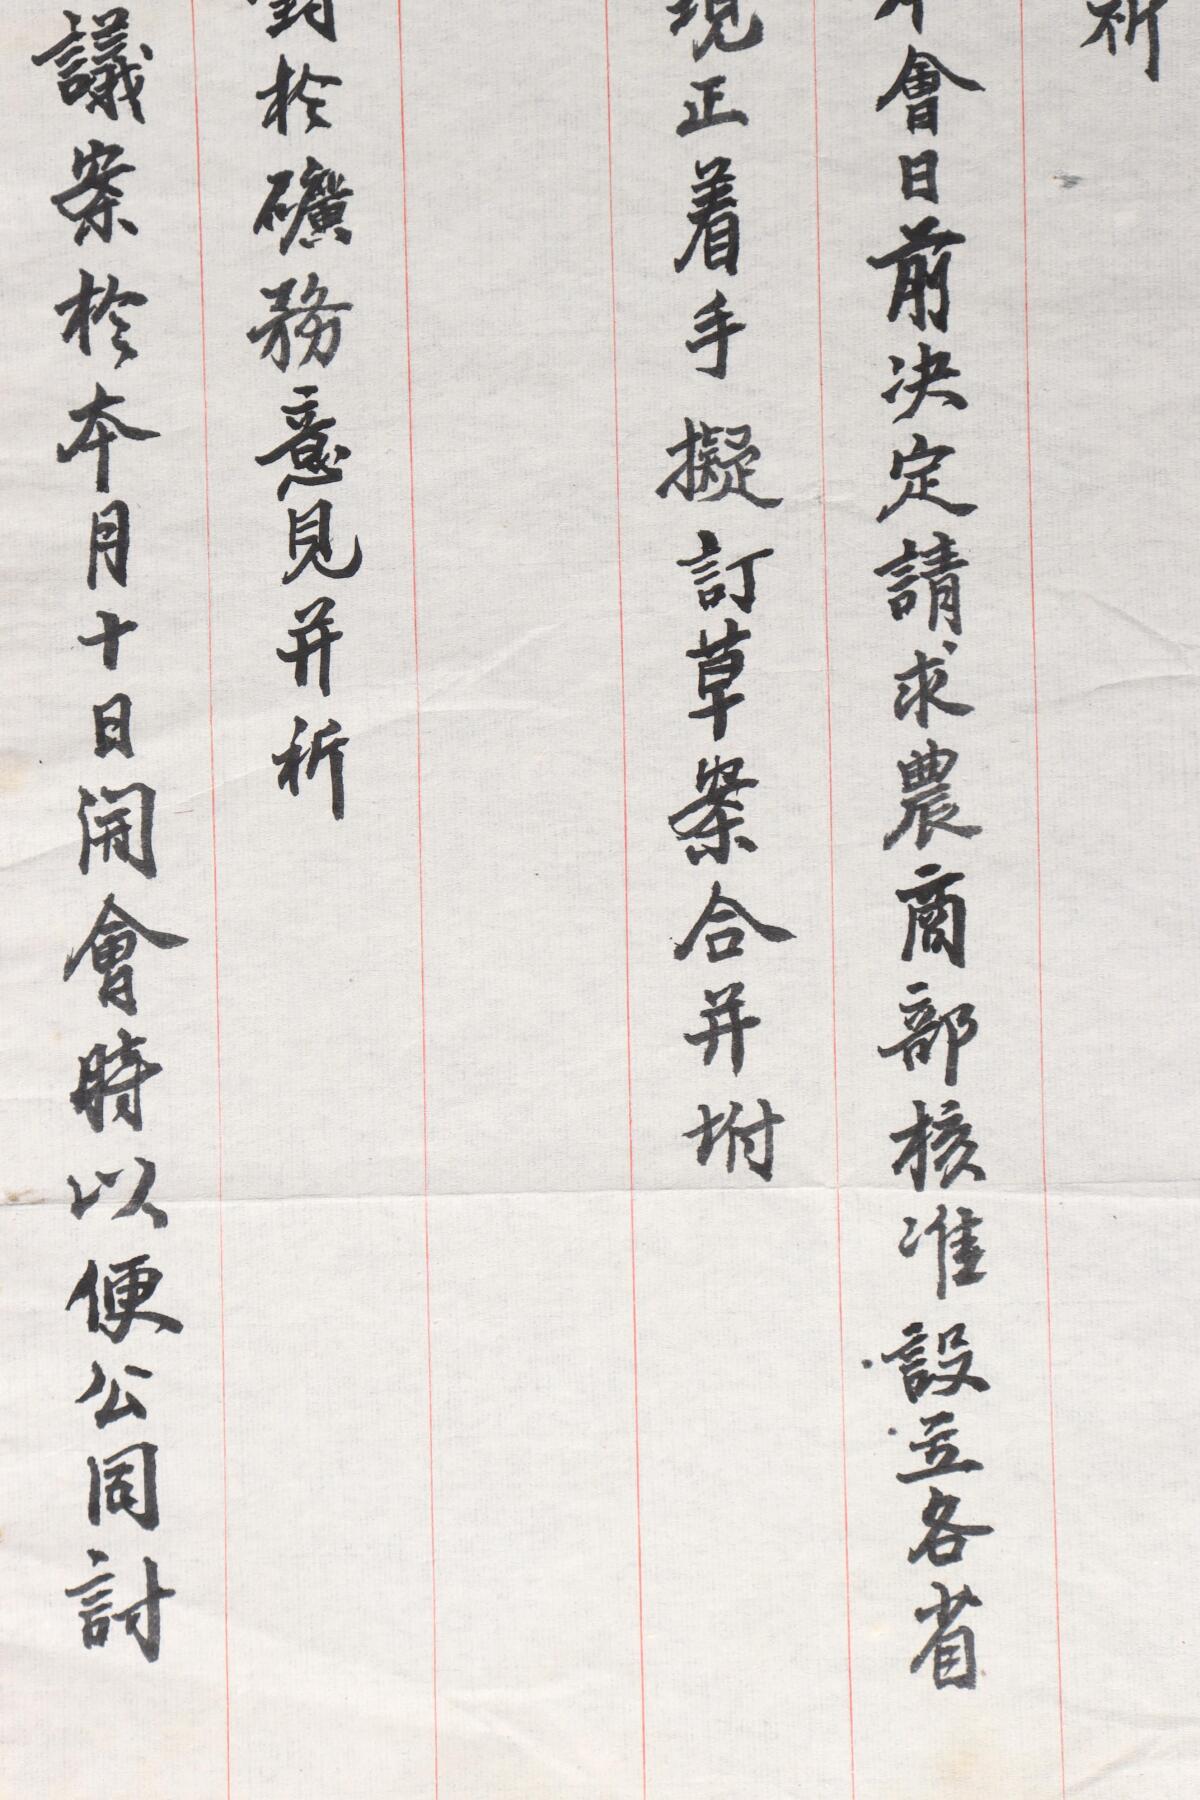 祈
會日前決定請求農商部核准設立各省
現正着手擬訂草案合并坿
對於礦務意見并祈
議案於本月十日開會時以便公同討